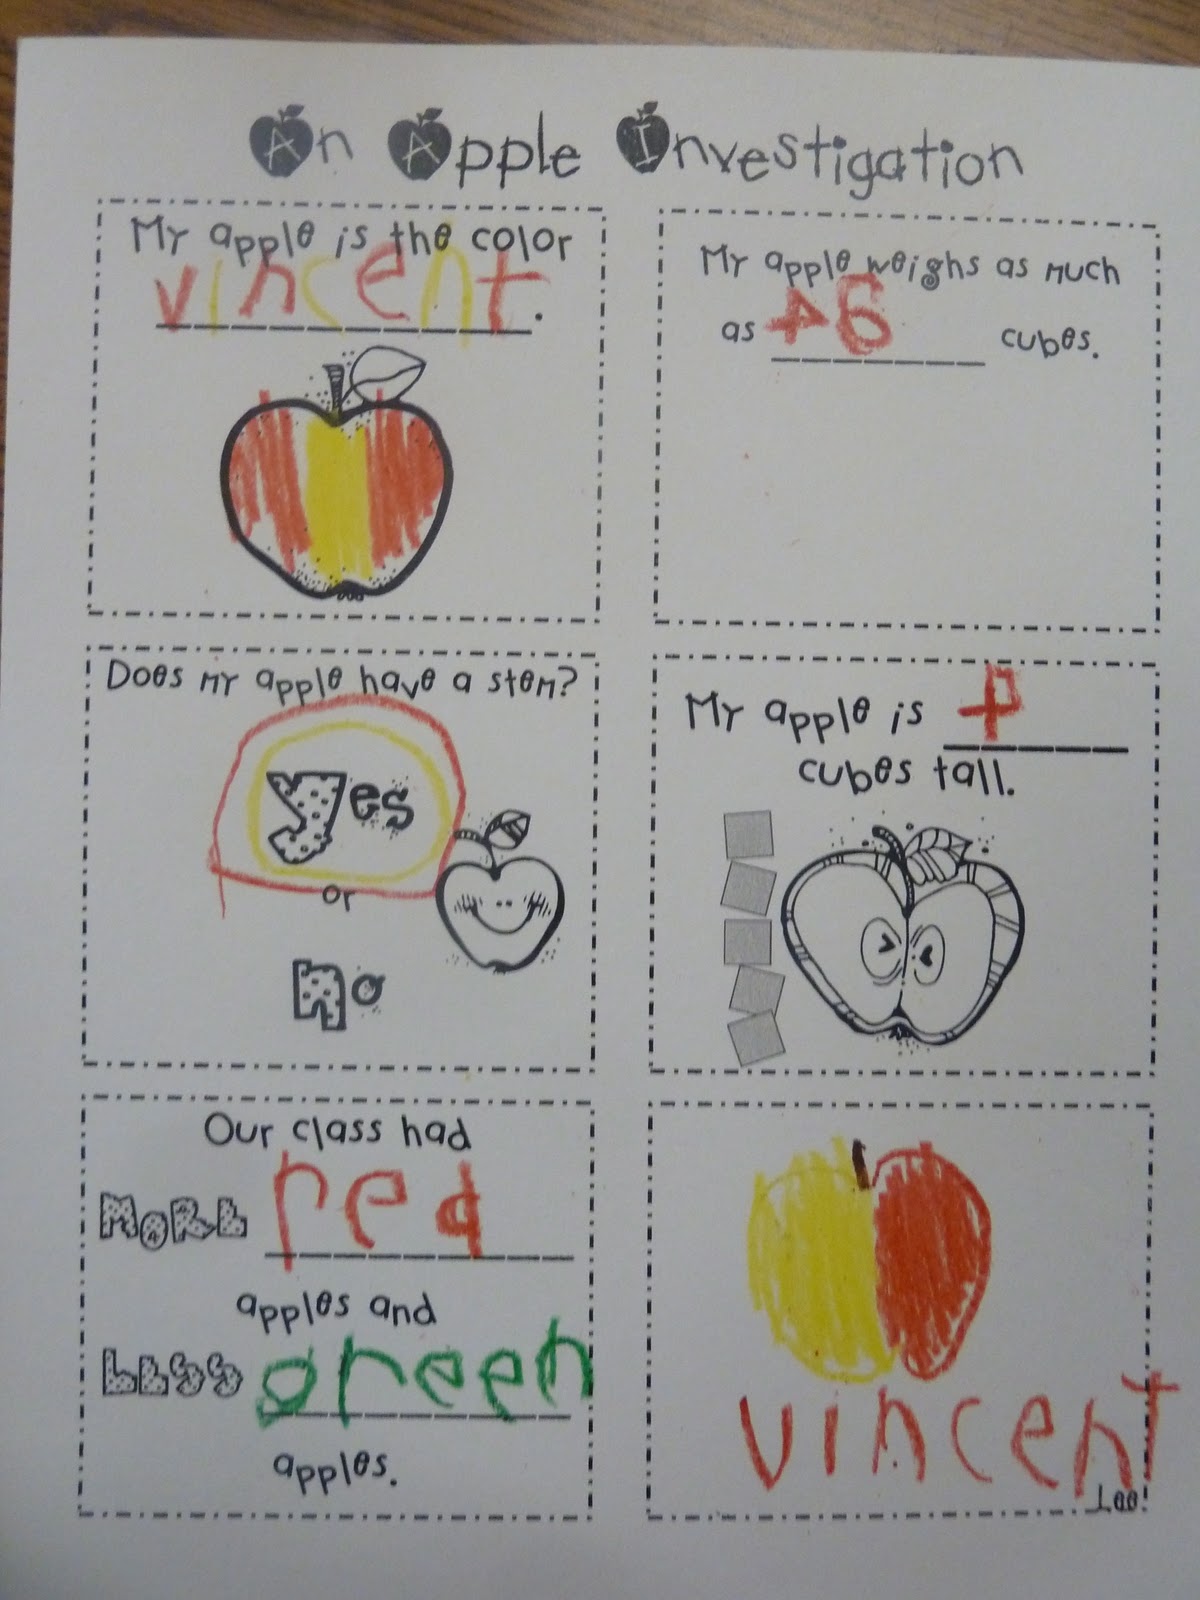 An Apple Investigation
My apple is the color
vincent.
My apple weighs as much
as 46 cubes.
Does my apple have a stem?
yes
or
no
My apple is 4
cubes tall.
Our class had
MORE red
apples and
LESS green
apples.
vincent
Lee